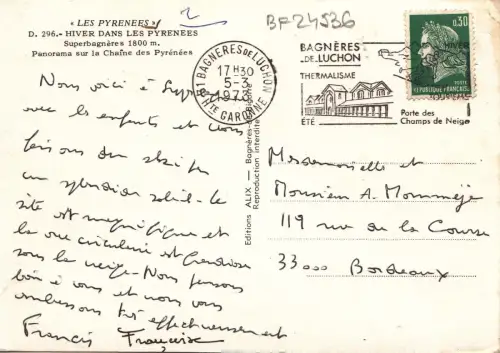 « LES PYRENEES »
D. 296.- HIVER DANS LES PYRENEES
Superbagnères 1800 m.
Panorama sur la Chaîne des Pyrénées
2
BF24536
Nous voici à
avec les enfants et nous
faisons du ski par
un splendide soleil - le
site est magnifique et
la vue circulaire est grandiose
sous la neige - Nous pensons
bien à vous et nous vous
embrassons très affectueusement
Francis Françoise
Editions ALIX — Bagnères-de-Bigorre
Reproduction interdite
BAGNERES DE LUCHON
17H30
5-3
1973
Hte GARONNE
BAGNÈRES
_DE_LUCHON
THERMALISME
ÉTÉ
HIVER
Porte des
Champs de Neige
0,30
POSTES
REPUBLIQUE FRANÇAISE
Mesdemoiselles et
Monsieur A. Mommèje
119 rue de la Course
33000 Bordeaux